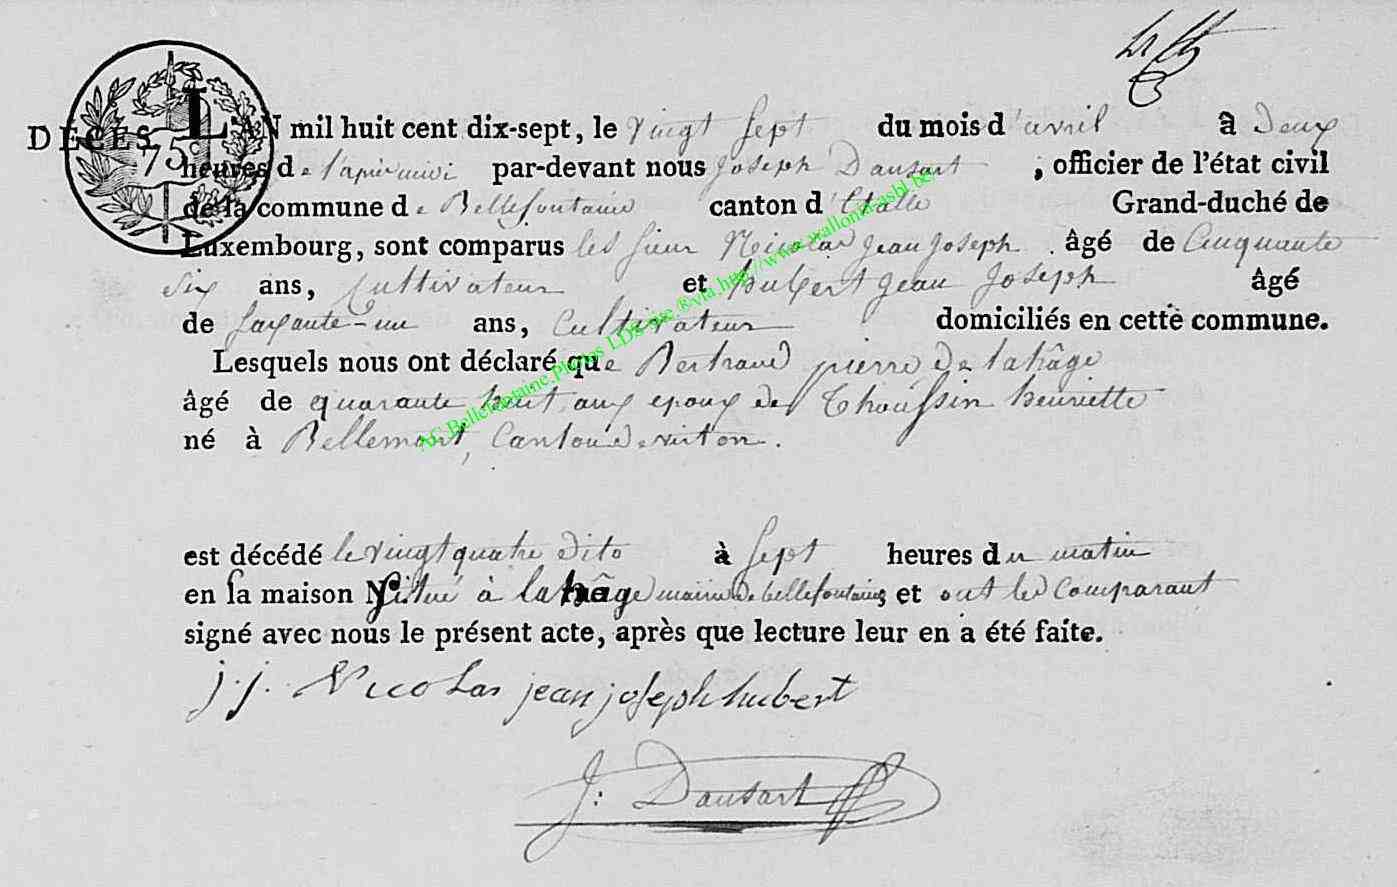 DÉCES.
75 c
L'AN mil huit cent dix-sept, le vingt sept du mois d'avril à deux
heures de l'apremidi par-devant nous Joseph Dansart, officier de l'état civil
de la commune de Bellefontaine canton d'Etalle Grand-duché de
Luxembourg, sont comparus les sieur Nicolas jean joseph âgé de Cinquante
six ans, Cultivateur et hubert jean Joseph âgé
de soixante-un ans, Cultivateur domiciliés en cette commune.
Lesquels nous ont déclaré que Bertrand pierre de lahâge
âgé de quarante huit ans epoux de Thoussin henriette
né à Bellemont, Canton de virton.
est décédé le vingt quatre dito à sept heures du matin
en sa maison situé à lahâge mairie de bellefontaine, et ont les Comparant
signé avec nous le présent acte, après que lecture leur en a été faite.
j. j. Nicolas jean joseph hubert
J: Dansart
AC Bellefontaine. Photos LDS.org ®via http://www.wallonia.asbl.be